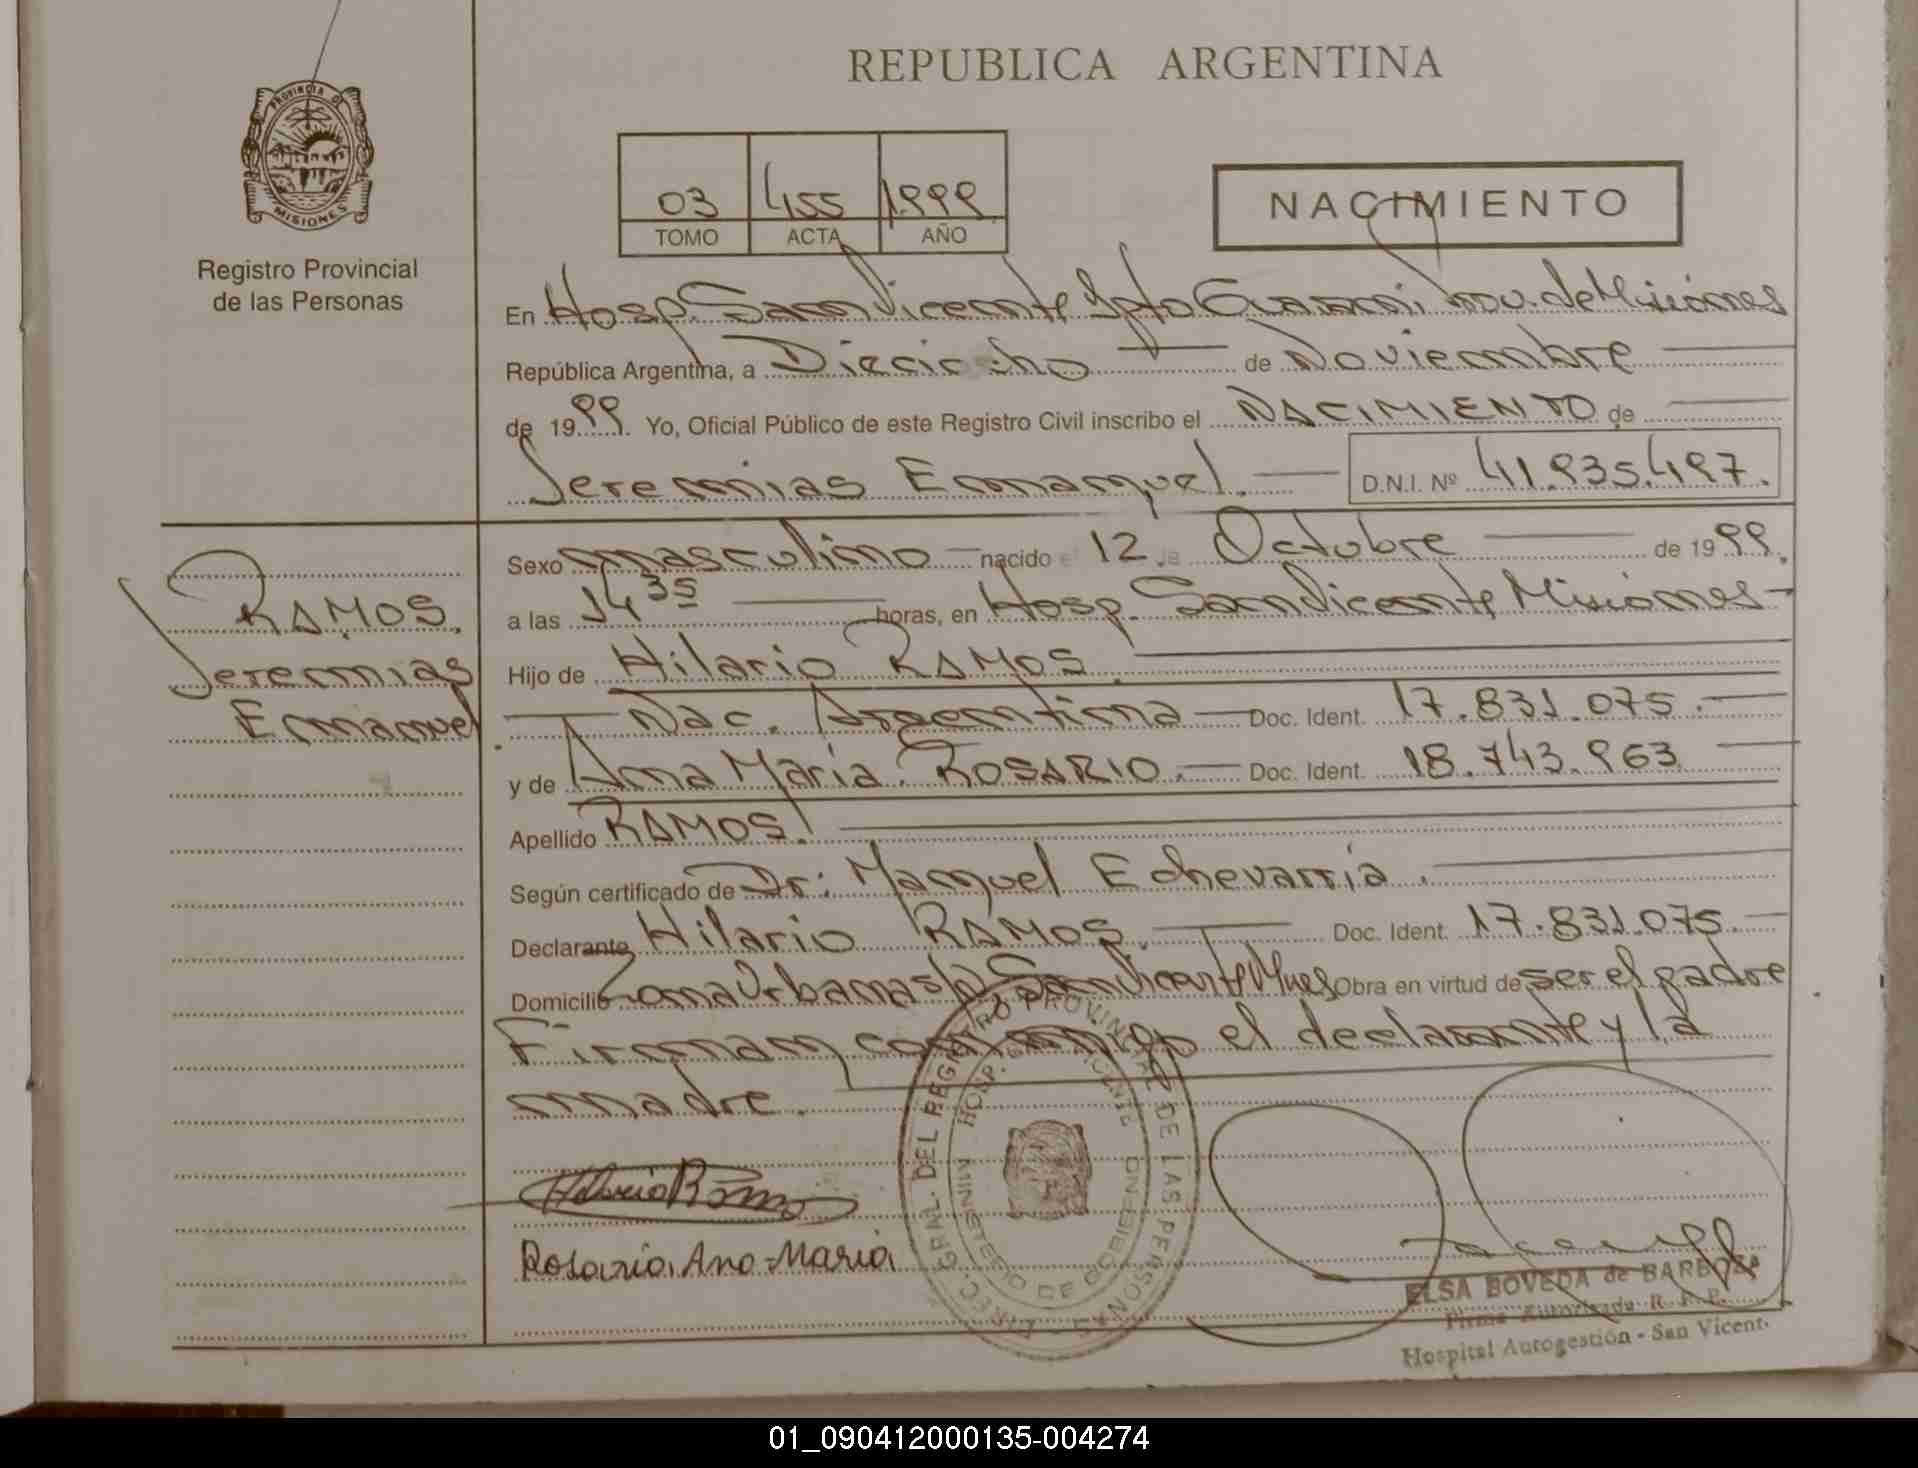 REPUBLICA ARGENTINA
PROVINCIA DE
MISIONES
Registro Provincial
de las Personas
03 455 1999
TOMO ACTA AÑO
NACIMIENTO
En Hosp. San Vicente Dpto Guaraní, Prov. de Misiones
República Argentina, a Dieciocho de Noviembre
de 1999 Yo, Oficial Público de este Registro Civil inscribo el NACIMIENTO de
Jeremias Emanuel. D.N.I. Nº 41.935.497.
RAMOS.
Jeremias
Emanuel.
Sexo masculino nacido el 12 de Octubre de 1999.
a las 14 35 horas, en Hosp. San Vicente Misiones
Hijo de Hilario RAMOS.
Nac. Argentina Doc. Ident. 17.831.075.
y de Ana Maria ROSARIO. Doc. Ident. 18.743.963
Apellido RAMOS.
Según certificado de Dr: Manuel Echevarria.
Declarante Hilario RAMOS. Doc. Ident. 17.831.075.
Domicilio Zona Urbana s/n San Vicente Mnes Obra en virtud de ser el padre
Firman conmigo el declarante y la
madre.
DIREC. GRAL. DEL REGISTRO PROVINCIAL DE LAS PERSONAS
HOSP. SAN VICENTE
MINISTERIO DE GOBIERNO
Hilario Ramos
Rosario, Ana Maria
ELSA BOVEDA de BARBOZA
Firma Autorizada R. P. P.
Hospital Autogestión - San Vicent.
01_090412000135-004274